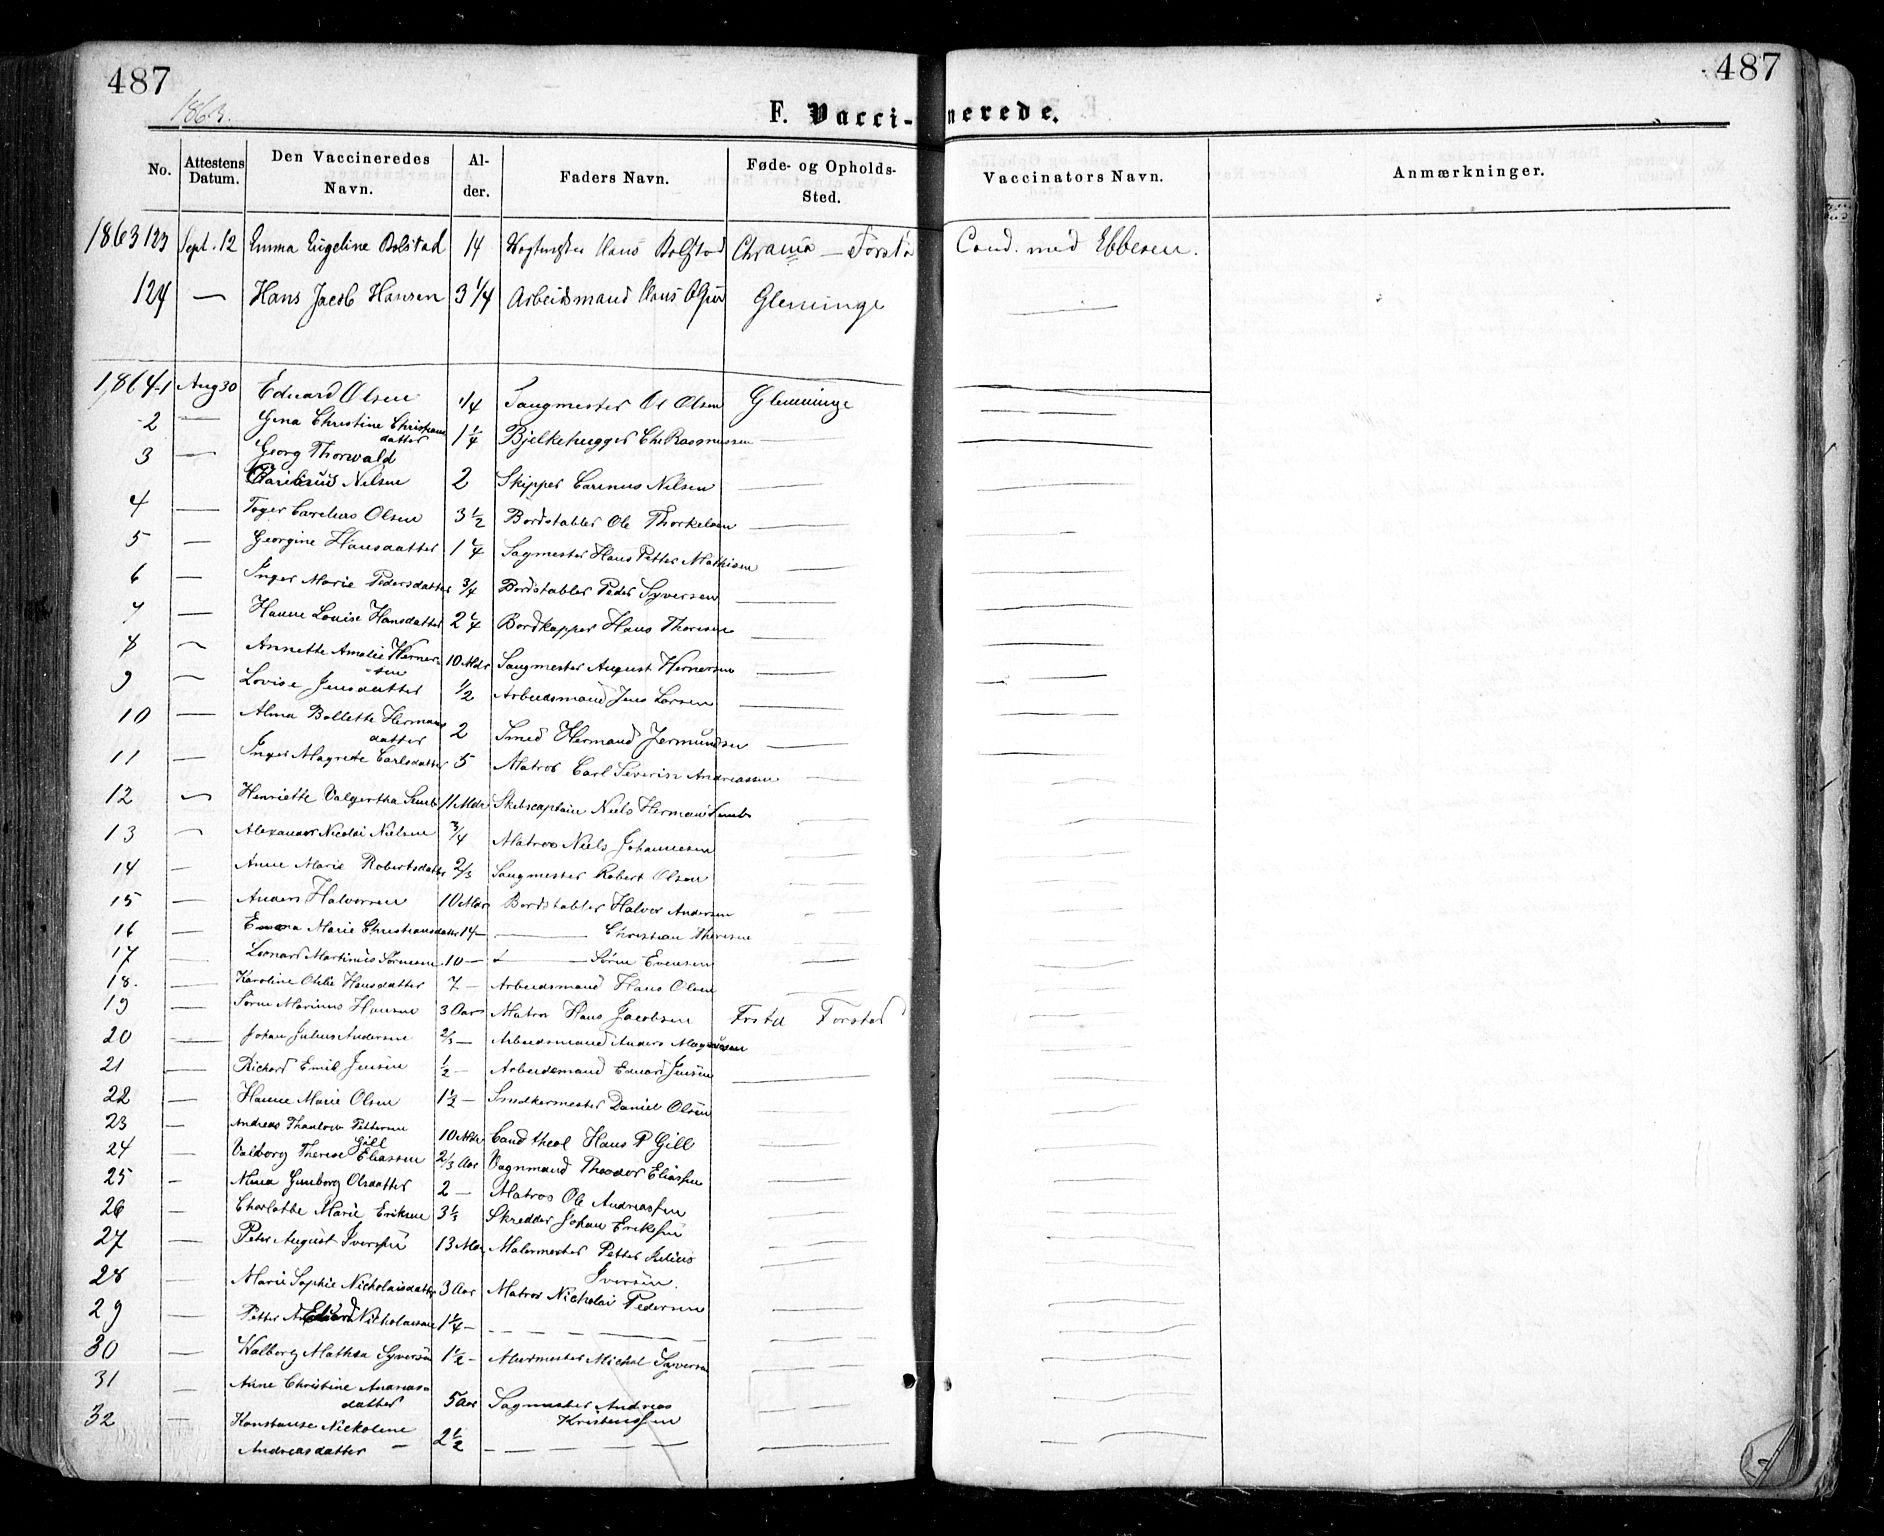 487 487
1863.
F. Vacci- nerede.
No. Attestens Datum. Den Vaccineredes Navn. Al- der. Faders Navn. Føde- og Opholds- Sted. Vaccinators Navn. Anmærkninger.
1863 123 Sept. 12 Emma Eugeline Bolstad 14 Hans Bolstad Chrania — Forsta Cand. med Ebbesen.
124 — Hans Jacob Hansen 3 1/4 Arbeidsmand Hans Glemminge —
1864 1 Aug 30 Eduard Olsen 1/4 Saugmester Ol Olsen Glemminge —
2 — Gina Christine Christians
datter 1 1/4 Bjelkehugger Chr Rasmussen — —
3 — Georg Thorwald
Nilsen 2 Skipper Carinus Nilsen — —
4 — Toger Carelius Olsen 3 1/2 Bordstabler Ole Thorkelsen — —
5 — Georgine Hansdatter 1 1/4 Sagmester Hans Petter Mathisen — —
6 — Inger Marie Pedersdatter 3/4 Bordstabler Peder Syversen — —
7 — Hanne Louise Hansdatter 2 1/4 Bordkapper Hans Thoresen — —
8 — Annette Amalie Werner-
sen 10 Mdr Saugmester August Wernersen — —
9 — Lovise Jensdatter 1/2 Arbeidsmand Jens Larsen — —
10 — Alma Bollette Hermans
datter 2 Smed Hermand Jermundsen — —
11 — Inger Magrete Carlsdatter 5 Matros Carl Severin Andreassen — —
12 — Henriette Valgertha 11 Mdr Skibscaptain Niels Herman — —
13 — Alexander Nicolai Nielsen 3/4 Matros Niels Johannesen — —
14 — Anne Marie Robertsdatter 2/3 Saugmester Robert Olsen — —
15 — Anders Halvorsen 10 Mdr Bordstabler Halvor Andersen — —
16 — Emma Marie Christiansdatter 14 — — Christian Thoresen — —
17 — Leonard Martinius Sørensen 10 — — Søren Evensen — —
18. — Karoline Othilie Hansdatter 7 — Arbeidsmand Hans Olsen — —
19 — Søren Marinus Hansen 3 Aar Matros Hans Jacobsen Frstd Forstad —
20 — Johan Julius Andersen 2/3 — Arbeidsmand Anders Magnussen — —
21 — Richard Emil Jensen 1/2 — Arbeidsmand Eduard Jensen — —
22 — Hanne Marie Olsen 1 1/2 — Snedkermester Daniel Olsen — —
23 — Andreas Thaulow Pettersen
Gill 10 Mdr Cand theol Hans P Gill — —
24 — Valborg Therese Eliassen 2/3 Aar Vognmand Theodor Eliassen — —
25 — Olsdatter 2 — Matros Ole Andreassen — —
26 — Charlotte Marie Eriksen 3 1/3 Skredder Johan Eriksen — —
27 — Peter August Iversen 13 Mdr Malermester Petter Julius
Iversen. — —
28 — Marie Sophie Nicholaisdatter 3 Aar Matros Nicholai Pedersen — —
29 — Petter Nicholaisen 1 1/4 — — — — —
30 — Walborg Mathea Syversen 1 1/2 — Murmester Michal Syversen — —
31 — Anne Christine Andreas-
datter 5 Aar Sagmester Andreas
Kristenssen — —
32 — Konstanse Nickoline
Andreasdatter — 2 1/2 — — — — —